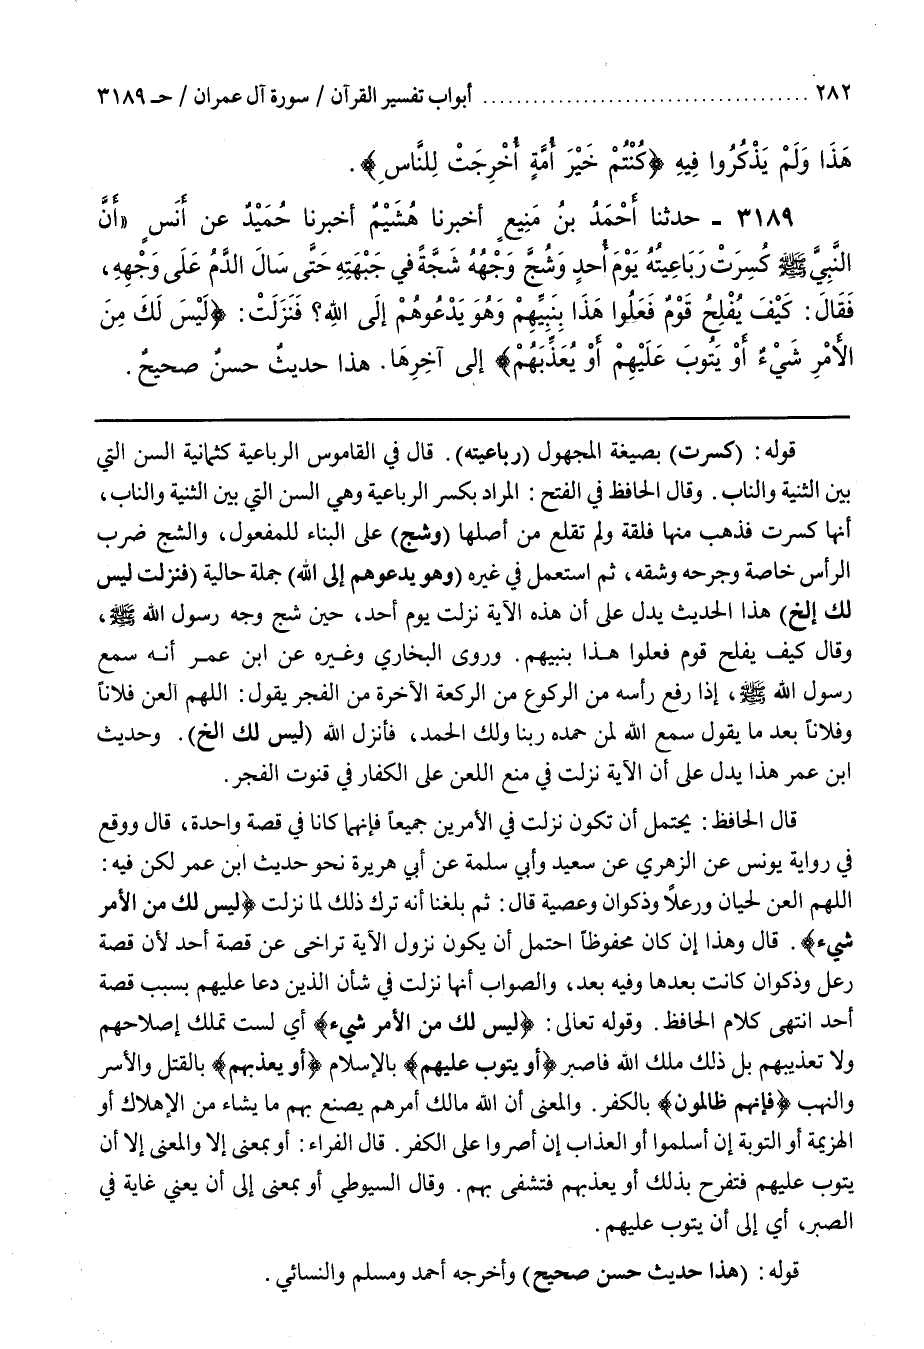 ٢٨٢ ........................................ أبواب تفسير القرآن / سورة آل عمران / حـ ٣١٨٩
هَذَا وَلَمْ يَذْكُرُوا فِيهِ ﴿كُنْتُمْ خَيْرَ أُمَّةٍ أُخْرِجَتْ لِلنَّاسِ﴾.
٣١٨٩ ـ حدثنا أَحْمَدُ بنُ مَنِيعٍ أخبرنا هُشَيْمٌ أخبرنا حُمَيْدٌ عن أَنَسٍ «أَنَّ
النَّبِيَّ ﷺ كُسِرَتْ رَبَاعِيتُهُ يَوْمَ أُحدٍ وَشُجَّ وَجْهُهُ شَجَّةً في جَبْهَتِهِ حَتَّى سَالَ الدَّمُ عَلَى وَجْهِهِ،
فَقَالَ: كَيْفَ يُفْلِحُ قَوْمٌ فَعَلُوا هَذَا بِنَبِيِّهِمْ وَهُوَ يَدْعُوهُمْ إلَى اللهِ؟ فَنَزَلَتْ: ﴿لَيْسَ لَكَ مِنَ
الأَمْرِ شَيْءٌ أَوْ يَتُوبَ عَلَيْهِمْ أَوْ يُعَذِّبَهُمْ﴾ إلى آخِرِهَا. هذا حديثٌ حسنٌ صحيحٌ.
قوله: (كسرت) بصيغة المجهول (رباعيته). قال في القاموس الرباعية كثمانية السن التي
بين الثنية والناب. وقال الحافظ في الفتح: المراد بكسر الرباعية وهي السن التي بين الثنية والناب،
أنها كسرت فذهب منها فلقة ولم تقلع من أصلها (وشج) على البناء للمفعول، والشج ضرب
الرأس خاصة وجرحه وشقه، ثم استعمل في غيره (وهو يدعوهم إلى الله) جملة حالية (فنزلت ليس
لك إلخ) هذا الحديث يدل على أن هذه الآية نزلت يوم أحد، حين شج وجه رسول الله ﷺ،
وقال كيف يفلح قوم فعلوا هذا بنبيهم. وروى البخاري وغيره عن ابن عمر أنه سمع
رسول الله ﷺ، إذا رفع رأسه من الركوع من الركعة الآخرة من الفجر يقول: اللهم العن فلاناً
وفلاناً بعد ما يقول سمع الله لمن حمده ربنا ولك الحمد، فأنزل الله (ليس لك الخ). وحديث
ابن عمر هذا يدل على أن الآية نزلت في منع اللعن على الكفار في قنوت الفجر.
قال الحافظ: يحتمل أن تكون نزلت في الأمرين جميعاً فإنهما كانا في قصة واحدة، قال ووقع
في رواية يونس عن الزهري عن سعيد وأبي سلمة عن أبي هريرة نحو حديث ابن عمر لكن فيه:
اللهم العن لحيان ورعلاً وذكوان وعصية قال: ثم بلغنا أنه ترك ذلك لما نزلت ﴿ليس لك من الأمر
شيء﴾. قال وهذا إن كان محفوظاً احتمل أن يكون نزول الآية تراخى عن قصة أحد لأن قصة
رعل وذكوان كانت بعدها وفيه بعد، والصواب أنها نزلت في شأن الذين دعا عليهم بسبب قصة
أحد انتهى كلام الحافظ. وقوله تعالى: ﴿ليس لك من الأمر شيء﴾ أي لست تملك إصلاحهم
ولا تعذيبهم بل ذلك ملك الله فاصبر ﴿أو يتوب عليهم﴾ بالإسلام ﴿أو يعذبهم﴾ بالقتل والأسر
والنهب ﴿فإنهم ظالمون﴾ بالكفر. والمعنى أن الله مالك أمرهم يصنع بهم ما يشاء من الإهلاك أو
الهزيمة أو التوبة إن أسلموا أو العذاب إن أصروا على الكفر. قال الفراء: أو بمعنى إلا والمعنى إلا أن
يتوب عليهم فتفرح بذلك أو يعذبهم فتشفى بهم. وقال السيوطي أو بمعنى إلى أن يعني غاية في
الصبر، أي إلى أن يتوب عليهم.
قوله: (هذا حديث حسن صحيح) وأخرجه أحمد ومسلم والنسائي.